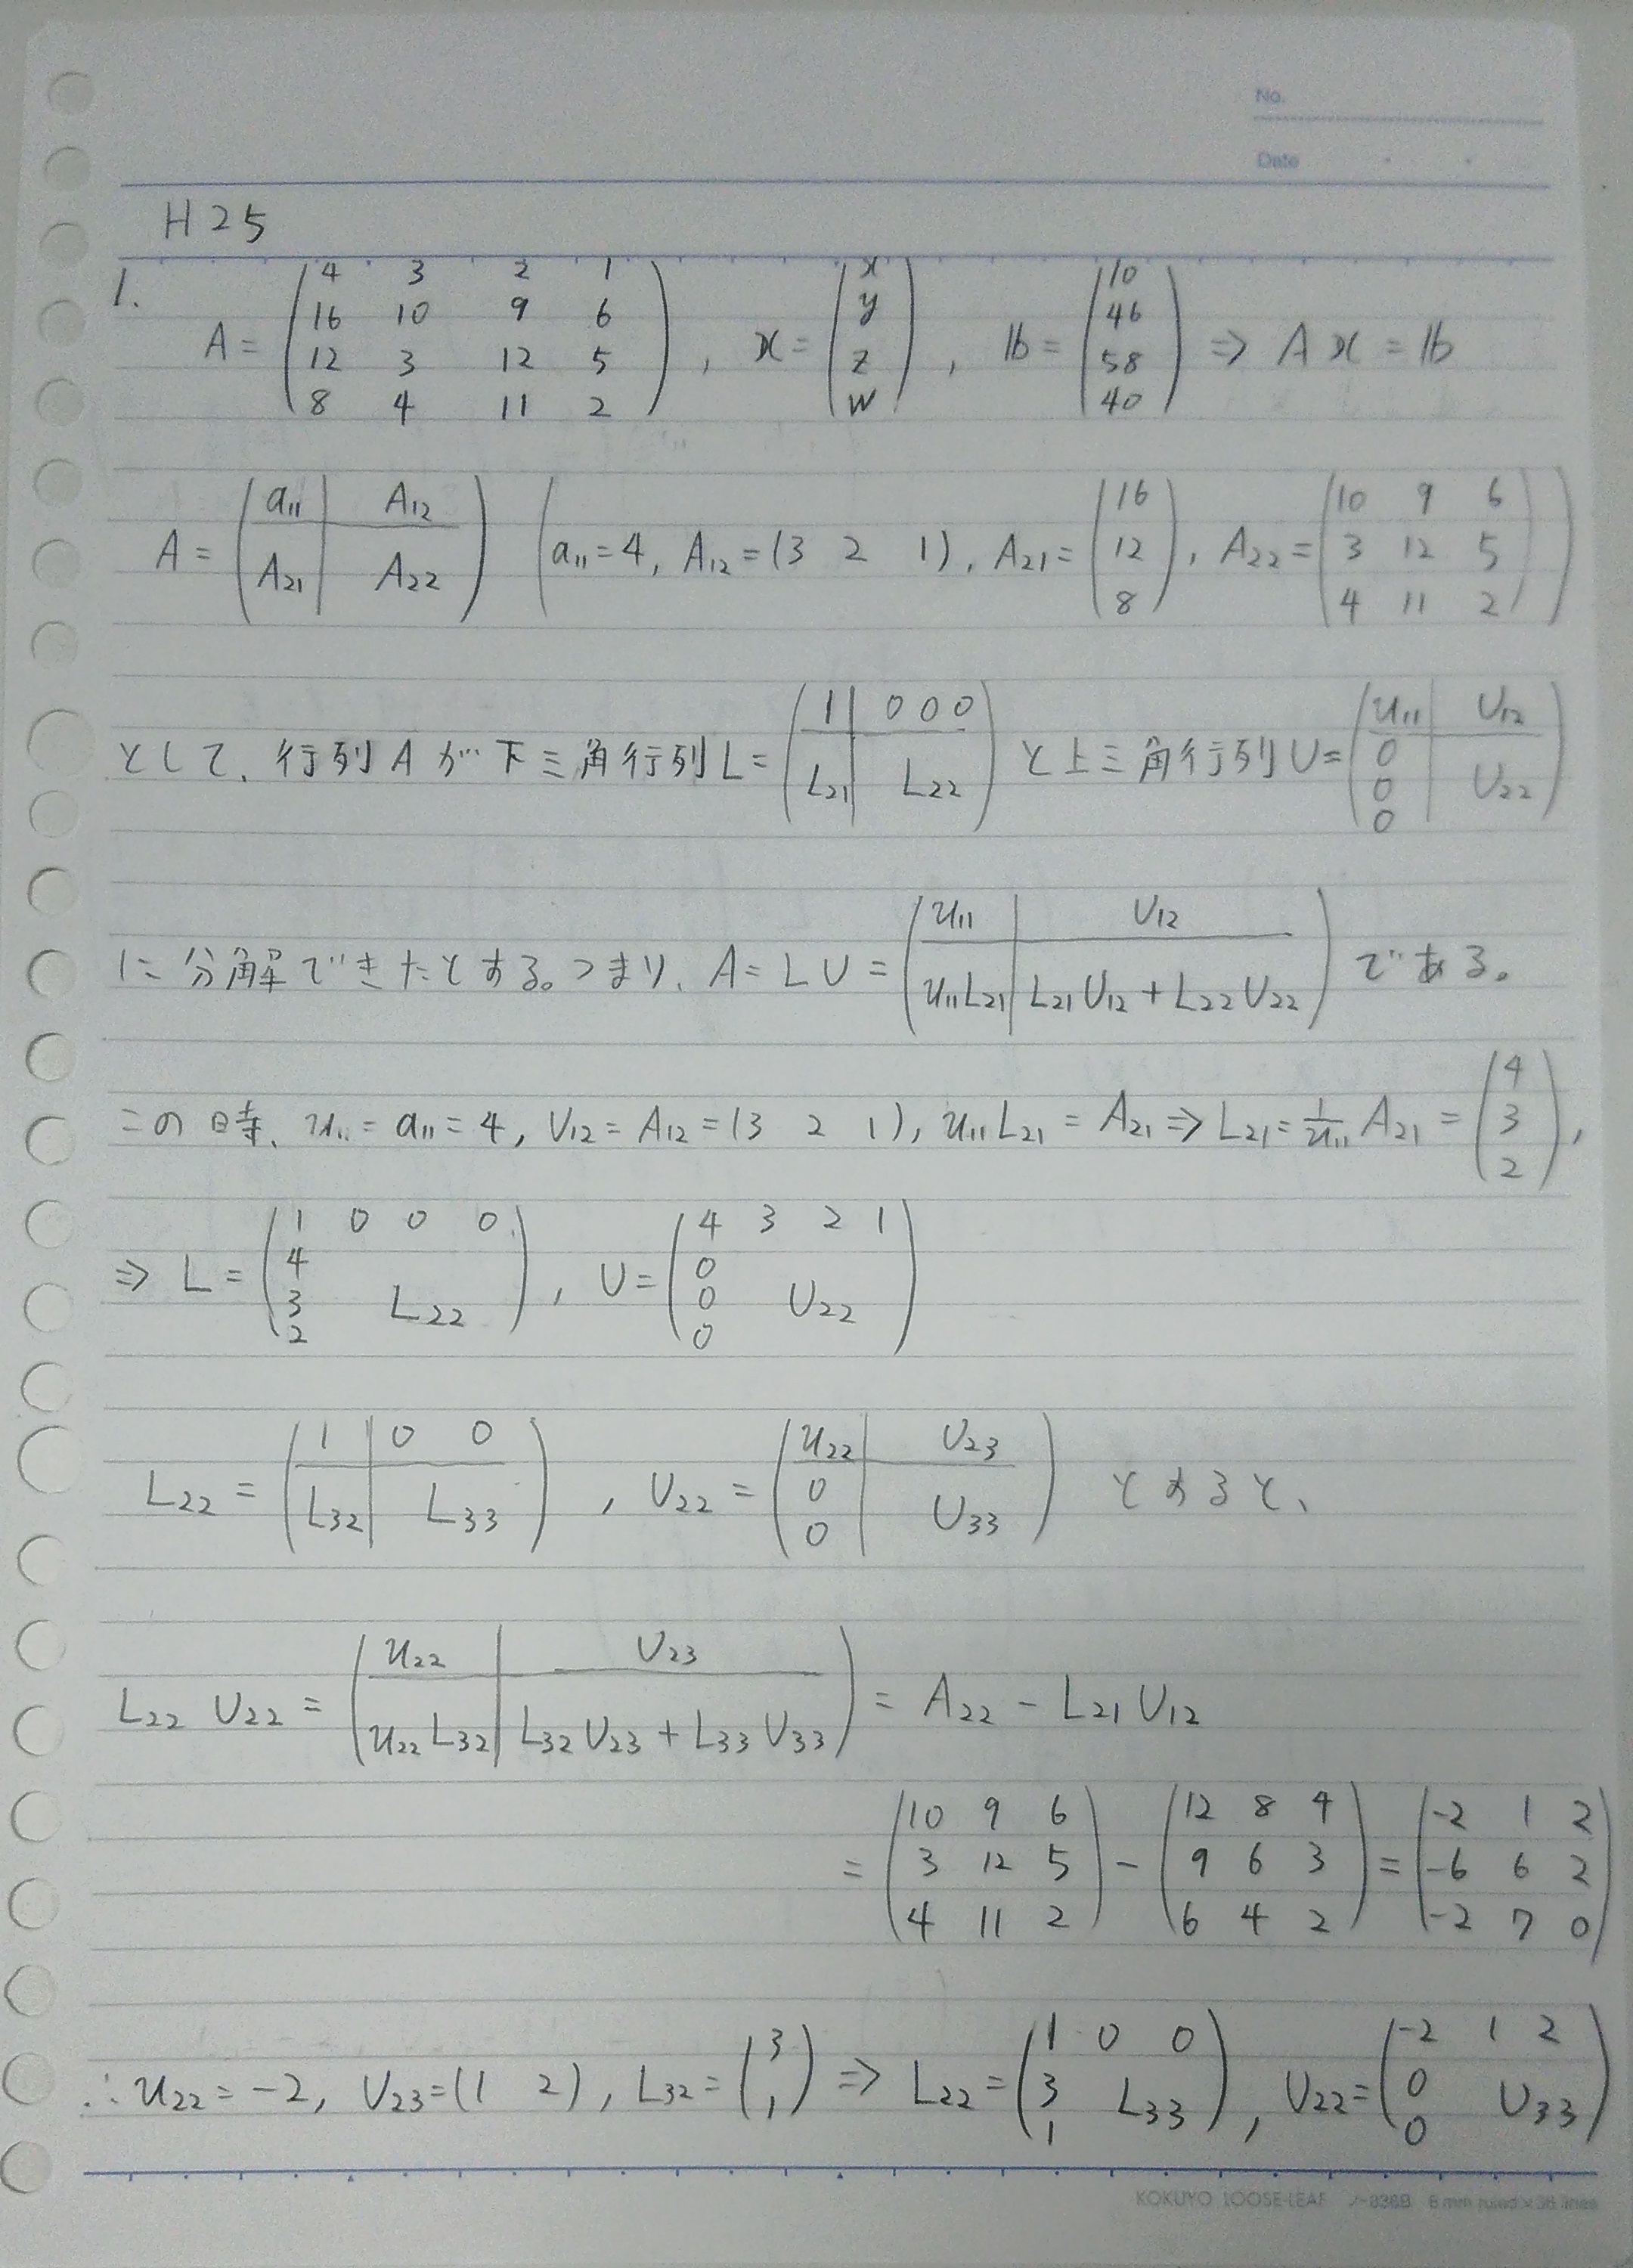 No.
Date
H25
1. A = \begin{pmatrix} 4 & 3 & 2 & 1 \\ 16 & 10 & 9 & 6 \\ 12 & 3 & 12 & 5 \\ 8 & 4 & 11 & 2 \end{pmatrix}, x = \begin{pmatrix} x \\ y \\ z \\ w \end{pmatrix}, b = \begin{pmatrix} 10 \\ 46 \\ 58 \\ 40 \end{pmatrix} ⇒ Ax = b
A = \left(\begin{array}{c|c} a_{11} & A_{12} \\ \hline A_{21} & A_{22} \end{array}\right) \left( a_{11} = 4, A_{12} = (3 2 1), A_{21} = \begin{pmatrix} 16 \\ 12 \\ 8 \end{pmatrix}, A_{22} = \begin{pmatrix} 10 & 9 & 6 \\ 3 & 12 & 5 \\ 4 & 11 & 2 \end{pmatrix} \right)
として、行列Aが下三角行列L = \left(\begin{array}{c|c} 1 & 0 0 0 \\ \hline L_{21} & L_{22} \end{array}\right) と上三角行列U = \left(\begin{array}{c|c} u_{11} & U_{12} \\ \hline 0 & \\ 0 & U_{22} \\ 0 & \end{array}\right)
に分解できたとする。つまり、A = LU = \left(\begin{array}{c|c} u_{11} & U_{12} \\ \hline u_{11}L_{21} & L_{21}U_{12} + L_{22}U_{22} \end{array}\right) である。
この時、u_{11} = a_{11} = 4, U_{12} = A_{12} = (3 2 1), u_{11}L_{21} = A_{21} ⇒ L_{21} = \frac{1}{u_{11}} A_{21} = \begin{pmatrix} 4 \\ 3 \\ 2 \end{pmatrix},
⇒ L = \begin{pmatrix} 1 & 0 & 0 & 0 \\ 4 & & & \\ 3 & & L_{22} & \\ 2 & & & \end{pmatrix}, U = \begin{pmatrix} 4 & 3 & 2 & 1 \\ 0 & & & \\ 0 & & U_{22} & \\ 0 & & & \end{pmatrix}
L_{22} = \left(\begin{array}{c|c} 1 & 0 0 \\ \hline L_{32} & L_{33} \end{array}\right), U_{22} = \left(\begin{array}{c|c} u_{22} & U_{23} \\ \hline 0 & \\ 0 & U_{33} \end{array}\right) とすると、
L_{22} U_{22} = \left(\begin{array}{c|c} u_{22} & U_{23} \\ \hline u_{22}L_{32} & L_{32}U_{23} + L_{33}U_{33} \end{array}\right) = A_{22} - L_{21}U_{12}
= \begin{pmatrix} 10 & 9 & 6 \\ 3 & 12 & 5 \\ 4 & 11 & 2 \end{pmatrix} - \begin{pmatrix} 12 & 8 & 4 \\ 9 & 6 & 3 \\ 6 & 4 & 2 \end{pmatrix} = \begin{pmatrix} -2 & 1 & 2 \\ -6 & 6 & 2 \\ -2 & 7 & 0 \end{pmatrix}
∴ u_{22} = -2, U_{23} = (1 2), L_{32} = \begin{pmatrix} 3 \\ 1 \end{pmatrix} ⇒ L_{22} = \begin{pmatrix} 1 & 0 & 0 \\ 3 & L_{33} & \\ 1 & & \end{pmatrix}, U_{22} = \begin{pmatrix} -2 & 1 & 2 \\ 0 & & U_{33} \\ 0 & & \end{pmatrix}
KOKUYO LOOSE-LEAF ノ-836B 6 mm ruled × 36 lines